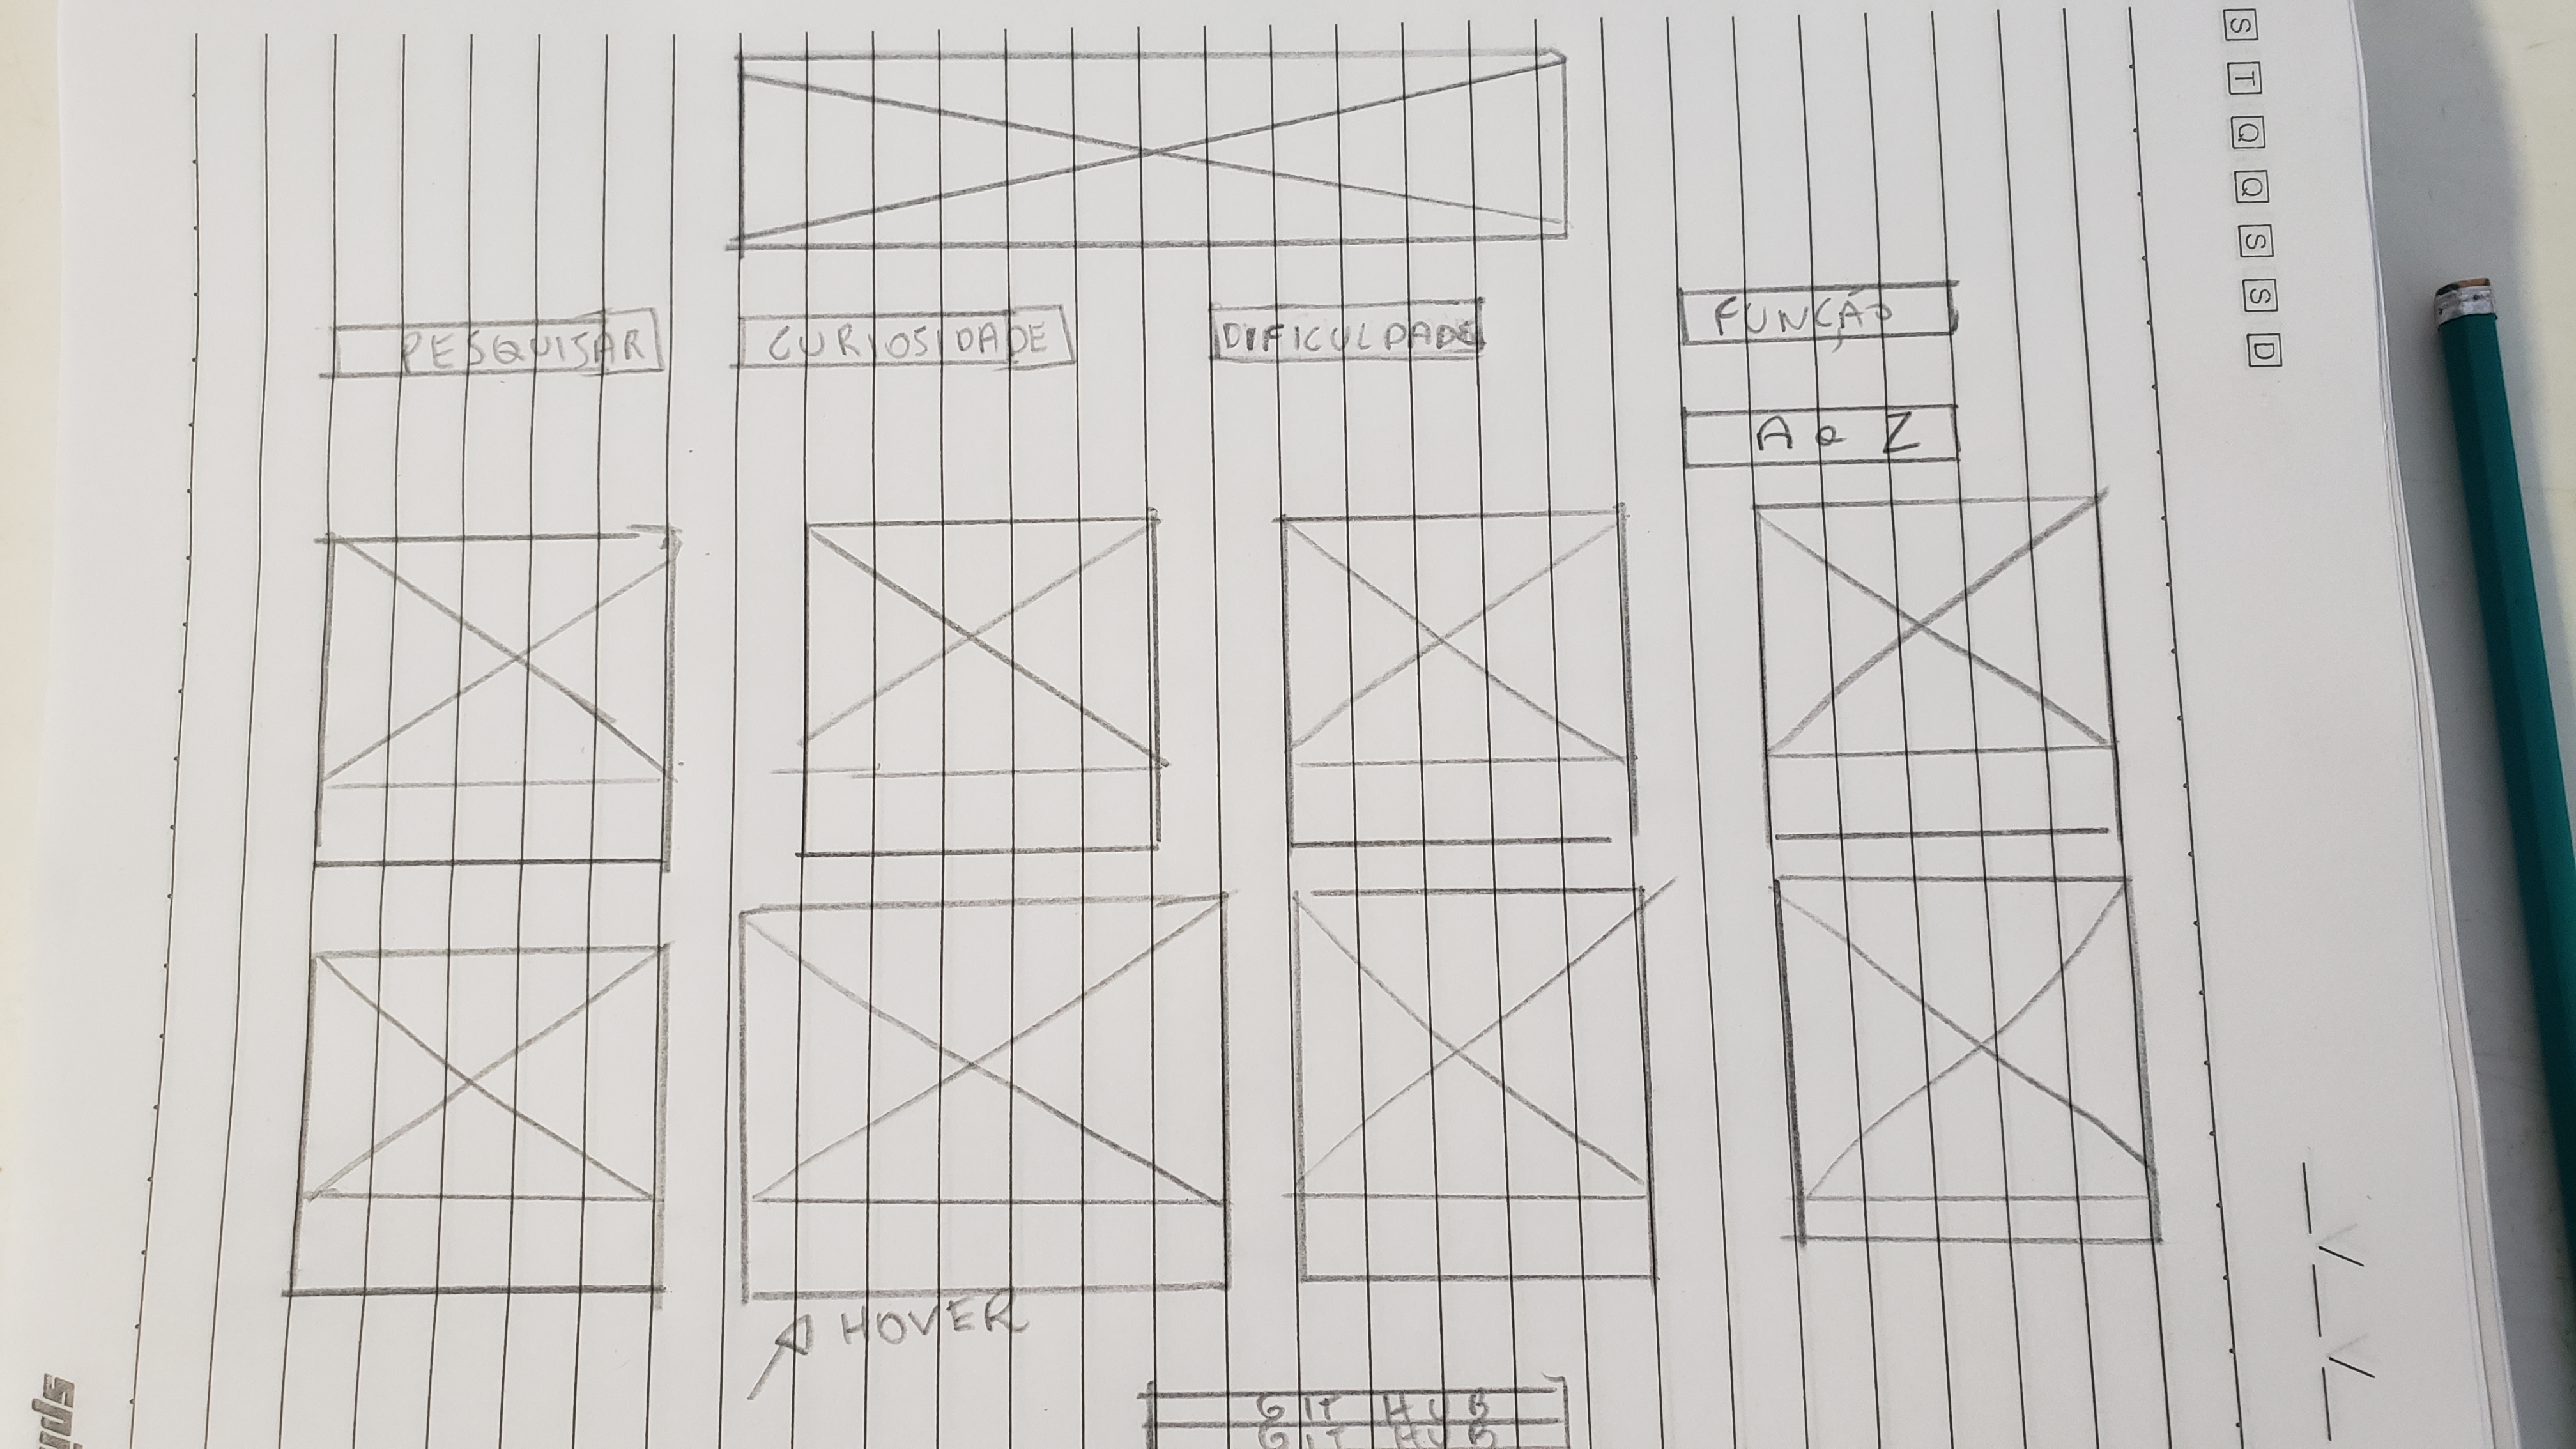 S T Q Q S S D
PESQUISAR CURIOSIDADE DIFICULDADE FUNÇÃO
A a Z
HOVER
GIT HUB
GIT HUB